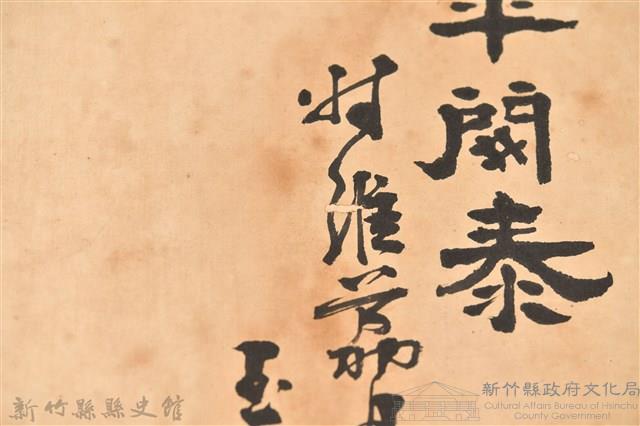 開泰
时維荔月
玉
新竹縣縣史館
新竹縣政府文化局
Cultural Affairs Bureau of Hsinchu
County Government